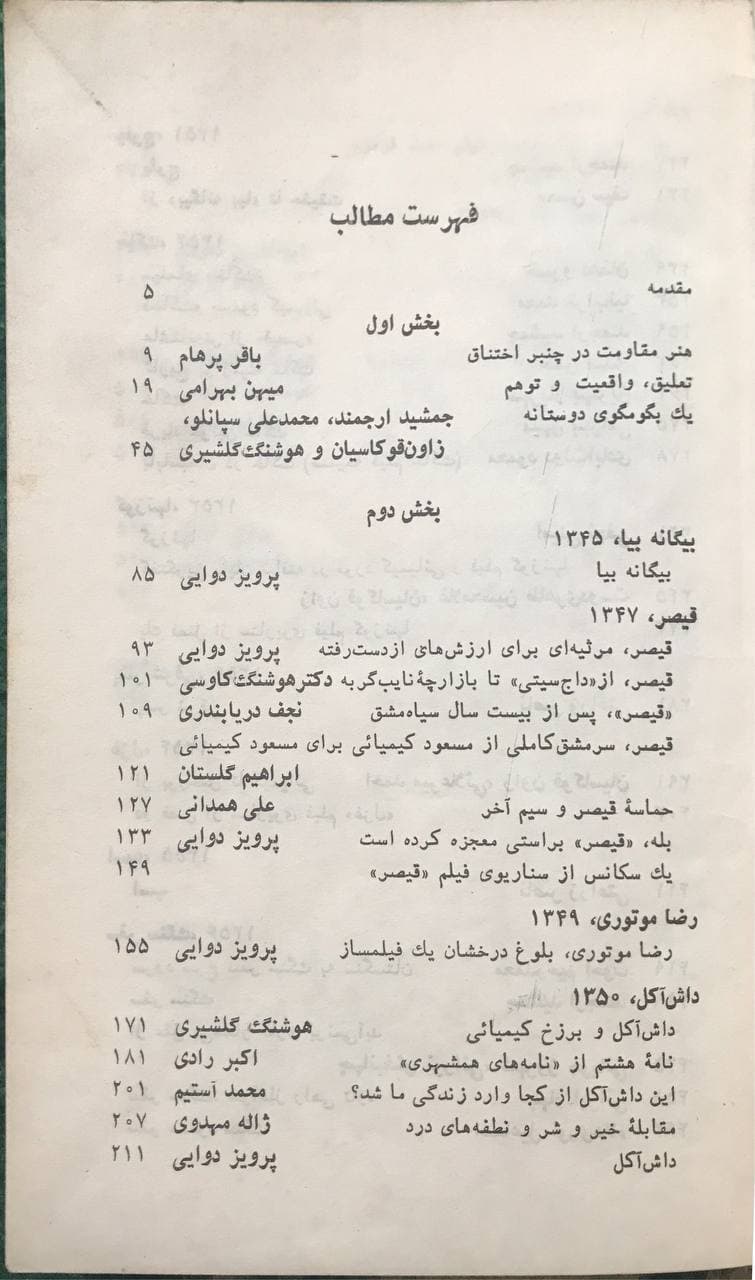 فهرست مطالب
مقدمه ۵
بخش اول
هنر مقاومت در چنبر اختناق باقر پرهام ۹
تعلیق، واقعیت و توهم میهن بهرامی ۱۹
یك بگومگوی دوستانه جمشید ارجمند، محمدعلی سپانلو،
زاون‌قوکاسیان و هوشنگ گلشیری ۴۵
بخش دوم
بیگانه بیا، ۱۳۴۵
بیگانه بیا پرویز دوایی ۸۵
قیصر، ۱۳۴۷
قیصر، مرثیه‌ای برای ارزش‌های ازدست‌رفته پرویز دوایی ۹۳
قیصر، از «داج‌سیتی» تا بازارچهٔ نایب‌گربه دکتر هوشنگ کاوسی ۱۰۱
«قیصر»، پس از بیست سال سیاه‌مشق نجف دریابندری ۱۰۹
قیصر، سرمشق کاملی از مسعود کیمیائی برای مسعود کیمیائی
ابراهیم گلستان ۱۲۱
حماسهٔ قیصر و سیم آخر علی همدانی ۱۲۷
بله، «قیصر» براستی معجزه کرده است پرویز دوایی ۱۳۳
یك سکانس از سناریوی فیلم «قیصر» ۱۴۹
رضا موتوری، ۱۳۴۹
رضا موتوری، بلوغ درخشان یك فیلمساز پرویز دوایی ۱۵۵
داش‌آکل، ۱۳۵۰
داش‌آکل و برزخ کیمیائی هوشنگ گلشیری ۱۷۱
نامهٔ هشتم از «نامه‌های همشهری» اکبر رادی ۱۸۱
این داش‌آکل از کجا وارد زندگی ما شد؟ محمد آستیم ۲۰۱
مقابلهٔ خیر و شر و نطفه‌های درد ژاله مهدوی ۲۰۷
داش‌آکل پرویز دوایی ۲۱۱